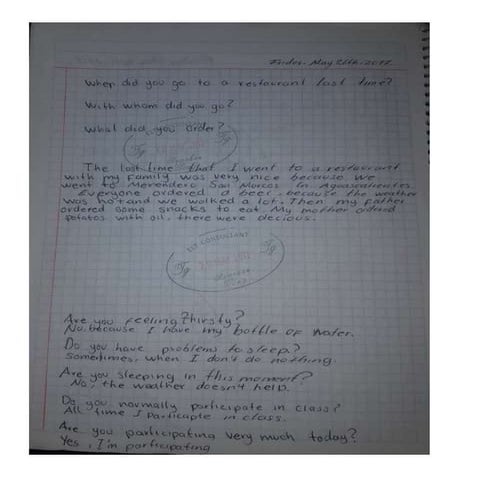 Friday, May 26th, 2017
When did you go to a restaurant last time?
With whom did you go?
What did you order?
The last time that I went to a restaurant
with my family was very nice because we
went to Merendero San Marcos in Aguascalientes
Everyone ordered a beer, because the weather
was hot and we walked a lot. Then my father
ordered some snacks to eat. My mother ordered
potatos with oil, there were decious.
EST CONSULTANT
Are you feeling thirsty?
No, because I have my bottle of water.
Do you have problems to sleep?
Sometimes, when I don't do nothing.
Are you sleeping in this moment?
No, the weather doesn't help.
Do you normally participate in class?
All time I participte in class.
Are you participating very much today?
Yes, I'm participating